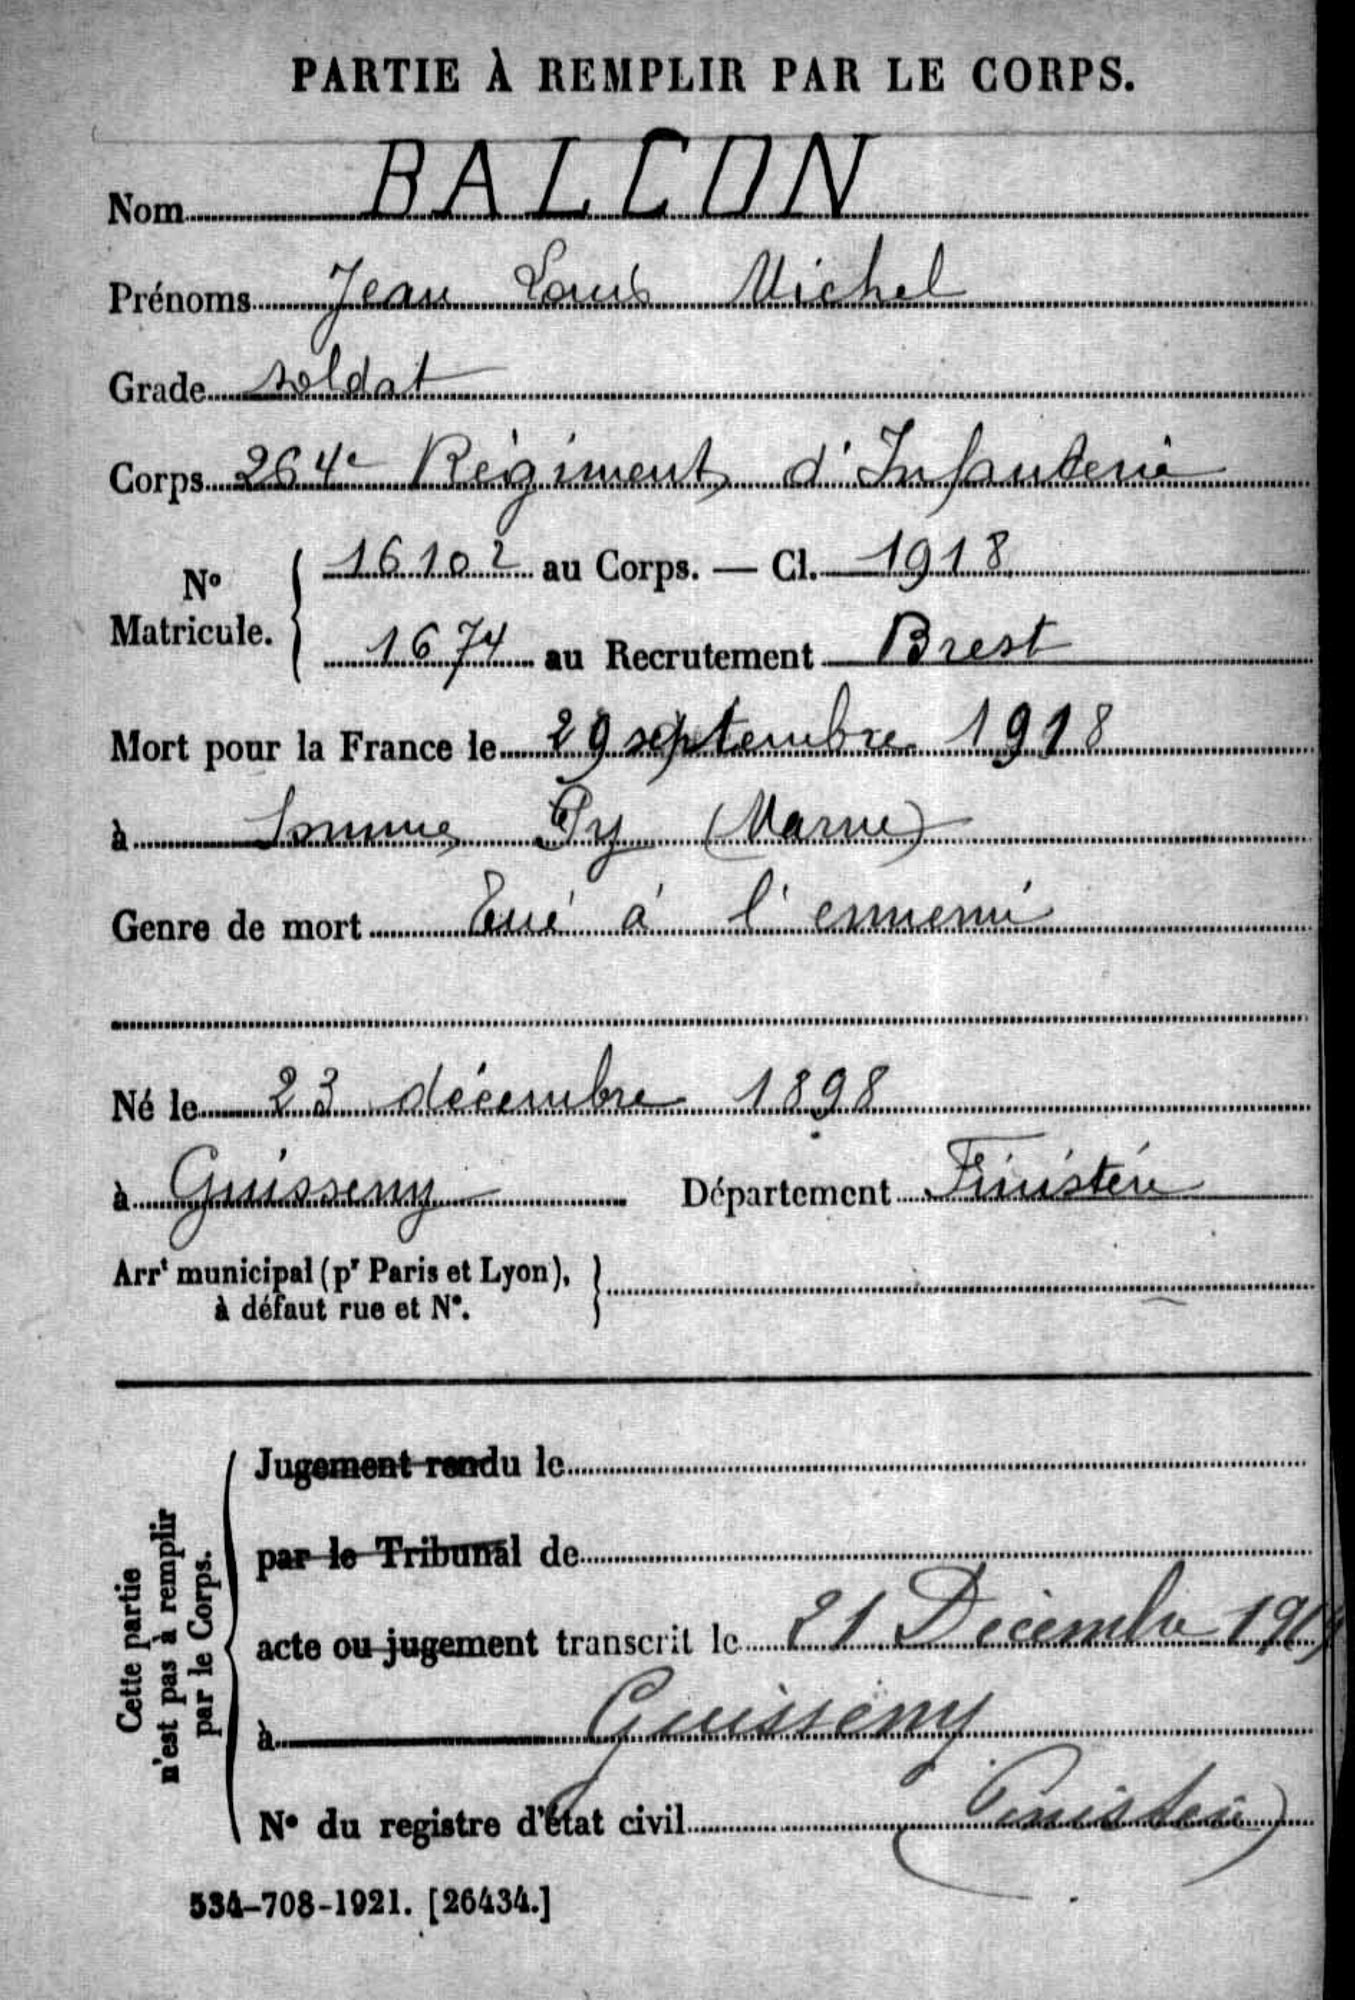 PARTIE À REMPLIR PAR LE CORPS.
Nom BALCON
Prénoms Jean Louis Michel
Grade soldat
Corps 264e Régiment d'Infanterie
N° Matricule. { 16102 au Corps. — Cl. 1918
1674 au Recrutement Brest
Mort pour la France le 29 septembre 1918
à Somme Py (Marne)
Genre de mort Tué à l'ennemi
Né le 23 décembre 1898
à Guisseny Département Finistère
Arrt municipal (pr Paris et Lyon), }
à défaut rue et N°.
Cette partie
n'est pas à remplir
par le Corps.
Jugement rendu le
par le Tribunal de
acte ou jugement transcrit le 21 Décembre
à Guisseny
N° du registre d'état civil (Finistère)
534-708-1921. [26434.]